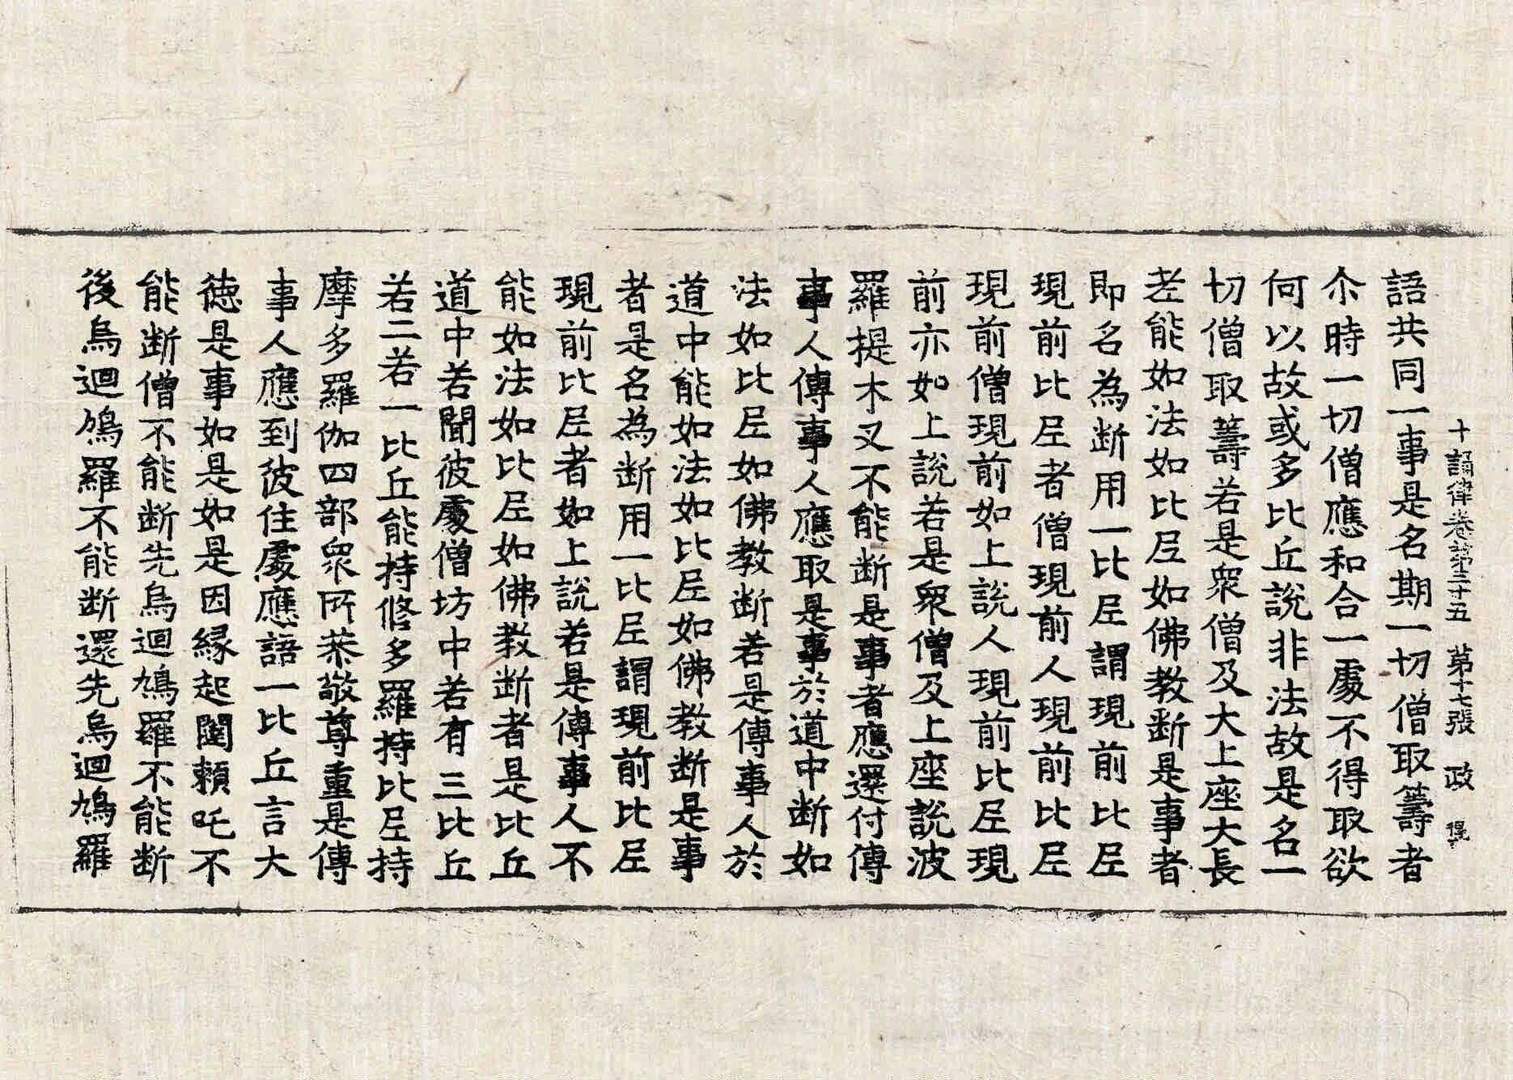 十誦律卷第三十五 第十七張 政
語共同一事是名期一切僧取籌者
尒時一切僧應和合一處不得取欲
何以故或多比丘說非法故是名一
切僧取籌若是衆僧及大上座大長
老能如法如比尼如佛教斷是事者
即名為斷用一比尼謂現前比尼
現前比尼者僧現前人現前比尼
現前僧現前如上說人現前比尼現
前亦如上說若是衆僧及上座說波
羅提木叉不能斷是事者應還付傳
事人傳事人應取是事於道中斷如
法如比尼如佛教斷若是傳事人於
道中能如法如比尼如佛教斷是事
者是名為斷用一比尼謂現前比尼
現前比尼者如上說若是傳事人不
能如法如比尼如佛教斷者是比丘
道中若聞彼處僧坊中若有三比丘
若二若一比丘能持修多羅持比尼持
摩多羅伽四部衆所恭敬尊重是傳
事人應到彼住處應語一比丘言大
德是事如是如是因縁起闥賴吒不
能斷僧不能斷先烏迴鳩羅不能斷
後烏迴鳩羅不能斷還先烏迴鳩羅